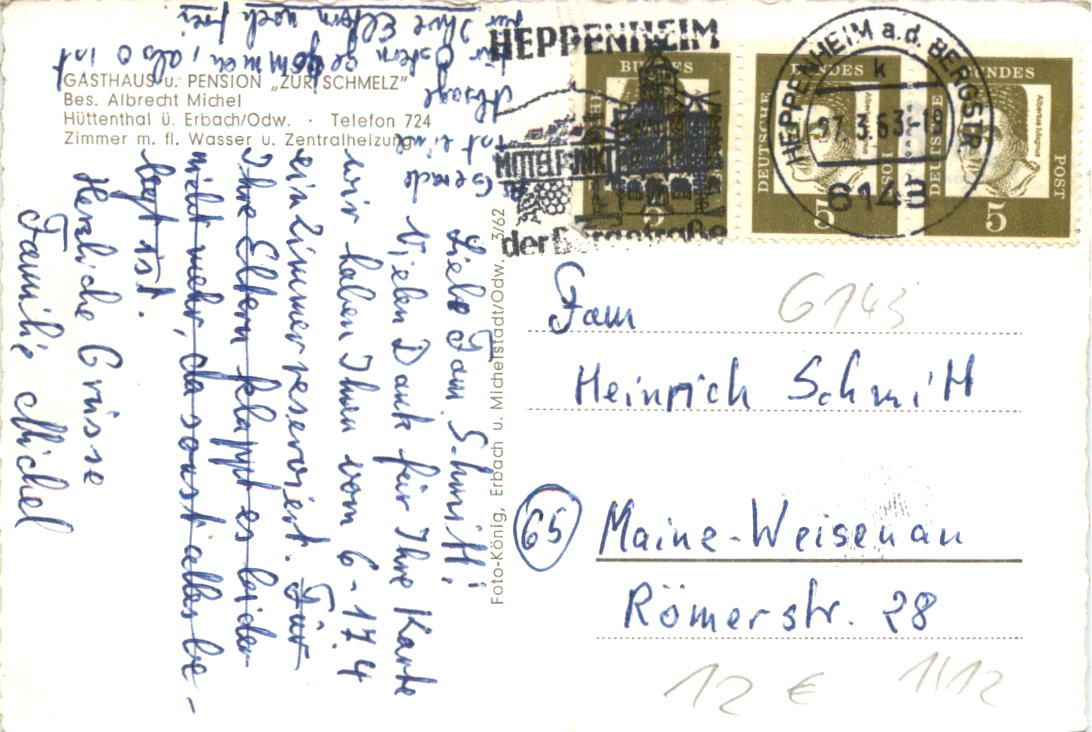 GASTHAUS u. PENSION „ZUR SCHMELZ"
Bes. Albrecht Michel
Hüttenthal ü. Erbach/Odw. · Telefon 724
Zimmer m. fl. Wasser u. Zentralheizung
Liebe Fam. Schmitt!
Vielen Dank für Ihre Karte
wir haben Ihnen vom 6-17.4
ein Zimmer reserviert. Für
Ihre Eltern klappt es leider
nicht mehr, da sonst alles be-
legt ist.
Herzliche Grüsse
Familie Michel
Gerade ist eine Absage
für Ostern gekommen, also ist
für Ihre Eltern noch frei.
Foto-König, Erbach u. Michelstadt/Odw. 3/62
HEPPENHEIM
MITTELPUNKT
der Bergstraße
HEPPENHEIM a.d. BERGSTR
k
27.3.63-18
6148
BUNDES
5
DEUTSCHE
BUNDES
POST
Albertus Magnus
5
DEUTSCHE
BUNDES
POST
Albertus Magnus
5
6143
Fam
Heinrich Schmitt
65 Mainz-Weisenau
Römerstr. 28
12 €